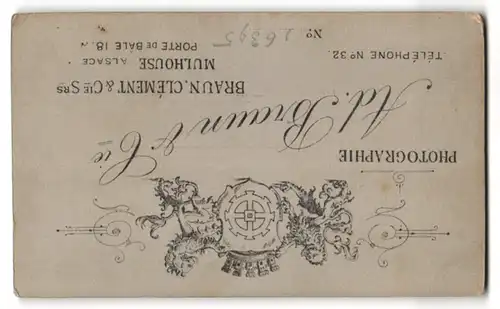 PHOTOGRAPHIE
Ad. Braun & Cie
BRAUN, CLÉMENT & CIE SRS
MULHOUSE ALSACE
PORTE DE BÂLE 18.
TÉLÉPHONE Nº 32.
Nº 26395